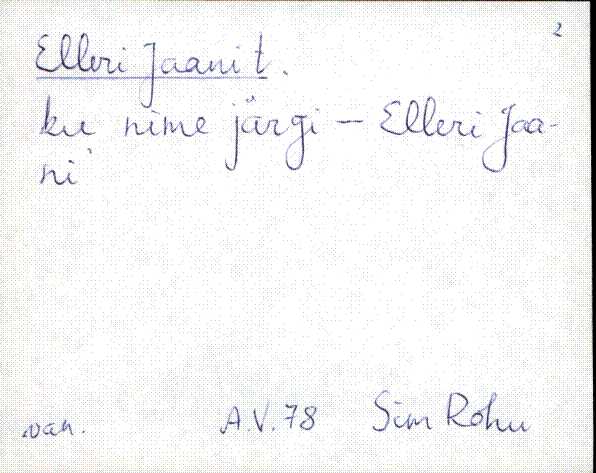 2
Elleri Jaani t.
ku nime järgi – Elleri Jaa-
ni
van. A.V. 78 Sim Rohu